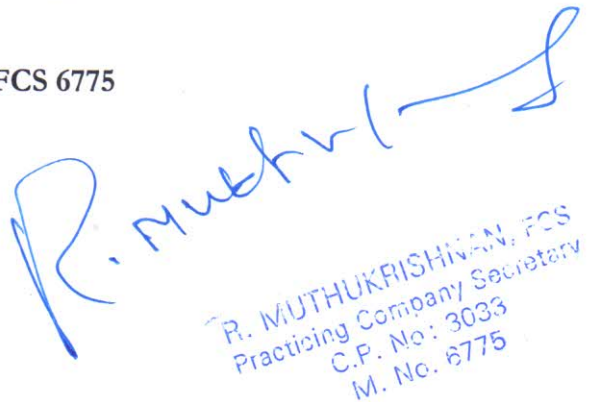 FCS 6775
R. Muthukr
R. MUTHUKRISHNAN, FCS
Practicing Company Secretary
C.P. No : 3033
M. No. 6775